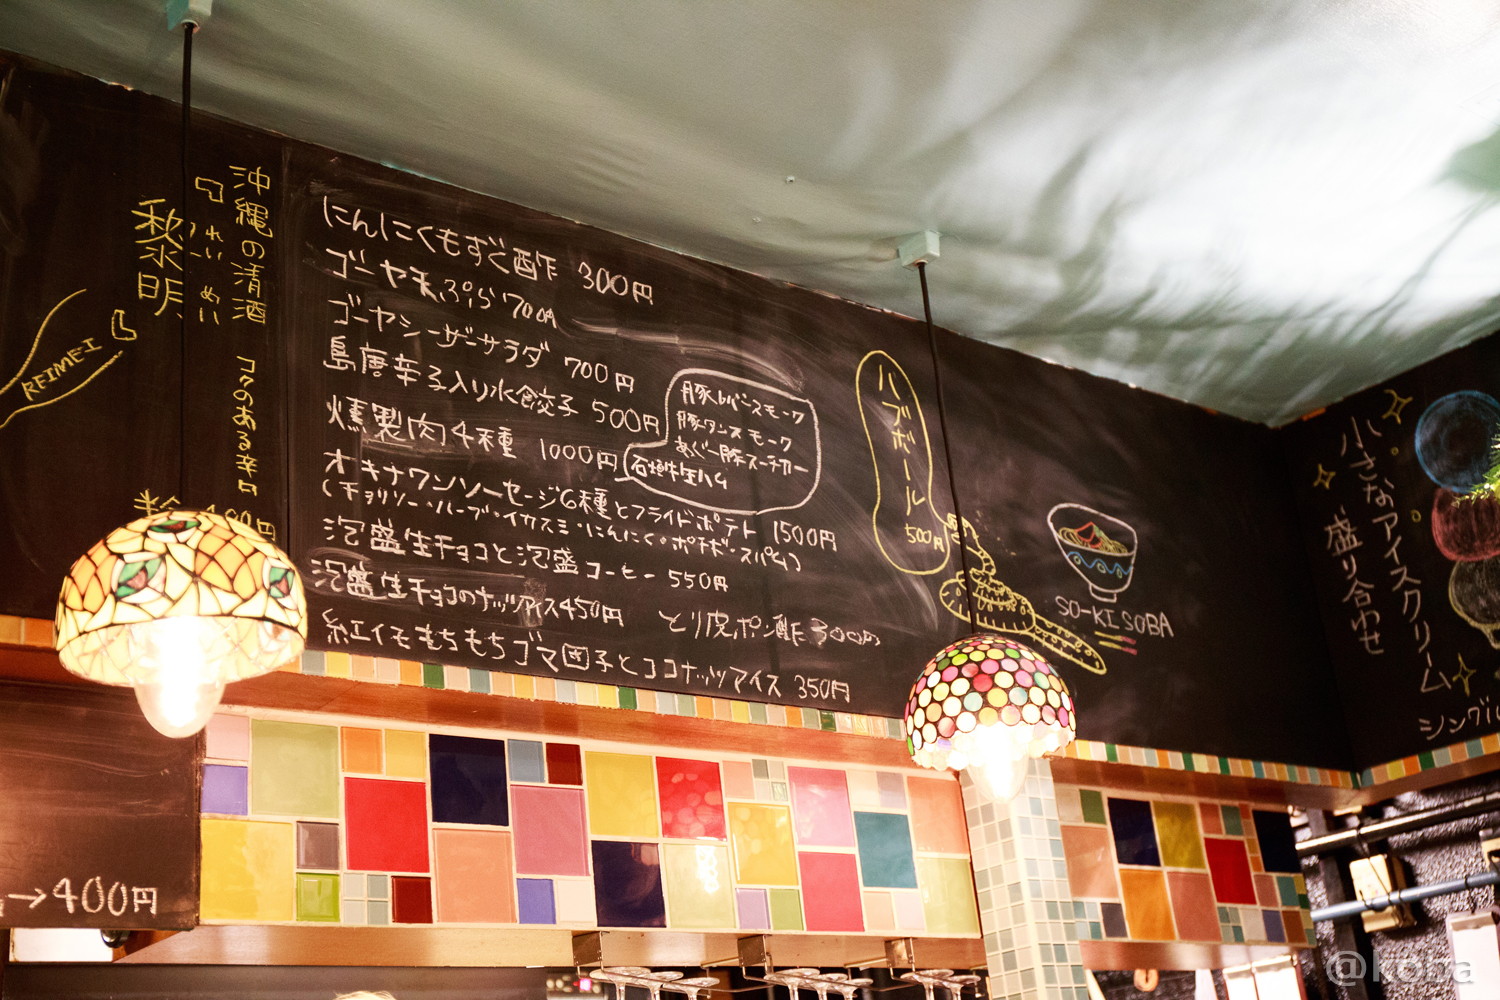 沖縄の清酒
コクのある辛口
れいめい
黎明
REIMEI
にんにくもずく酢 300円
ゴーヤ天ぷら 700円
ゴーヤシーザーサラダ 700円
島唐辛子入り水餃子 500円
燻製肉4種 1000円
豚レバースモーク
豚タンスモーク
あぐー豚スーチカー
石垣牛生ハム
オキナワンソーセージ6種とフライドポテト 1500円
(チョリソー・ハーブ・イカスミ・にんにく・ポチギ・スパム)
泡盛生チョコと泡盛コーヒー 550円
泡盛生チョコのナッツアイス 450円
とり皮ポン酢 300円
紅イモもちもちゴマ団子とココナッツアイス 350円
ハブボール
500円
SO-KISOBA
小さなアイスクリーム
盛り合わせ
シングル
→400円
@koba